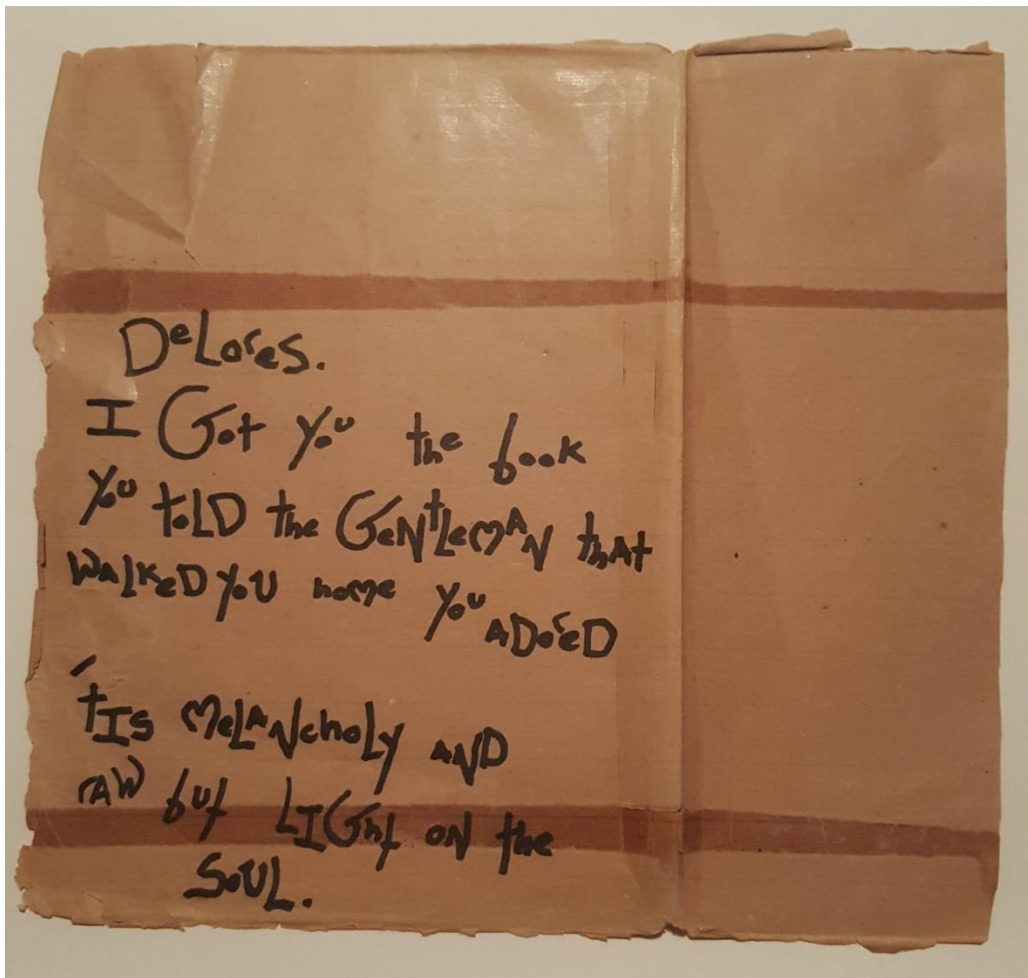 DeLores.
I Got you the book
you toLD the GeNtLemAN thAt
WALkeD yoU home you ADoreD
'tIs meLANchoLy AND
rAW but LIGht oN the
SoUL.